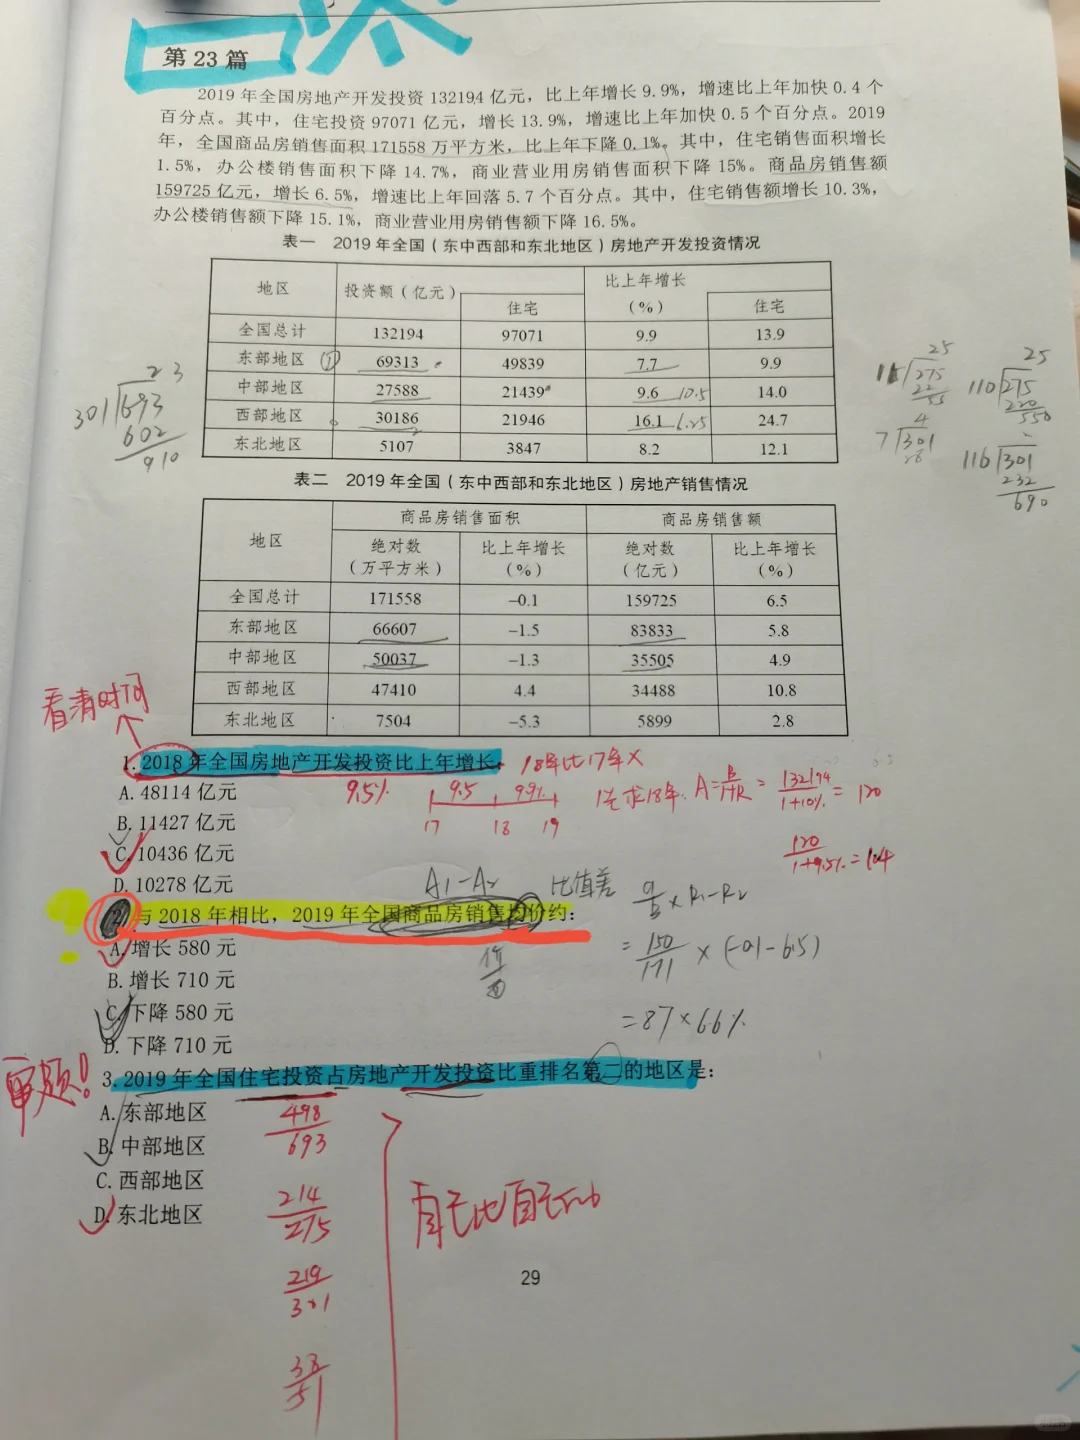 第 23 篇
2019 年全国房地产开发投资 132194 亿元，比上年增长 9.9%，增速比上年加快 0.4 个
百分点。其中，住宅投资 97071 亿元，增长 13.9%，增速比上年加快 0.5 个百分点。2019
年，全国商品房销售面积 171558 万平方米，比上年下降 0.1%。其中，住宅销售面积增长
1.5%，办公楼销售面积下降 14.7%，商业营业用房销售面积下降 15%。商品房销售额
159725 亿元，增长 6.5%，增速比上年回落 5.7 个百分点。其中，住宅销售额增长 10.3%，
办公楼销售额下降 15.1%，商业营业用房销售额下降 16.5%。
表一 2019 年全国（东中西部和东北地区）房地产开发投资情况
地区 投资额（亿元） 住宅 比上年增长（%） 住宅
全国总计 132194 97071 9.9 13.9
东部地区 ① 69313 49839 7.7 9.9
中部地区 27588 21439 9.6 10.5 14.0
西部地区 30186 21946 16.1 6.25 24.7
东北地区 5107 3847 8.2 12.1
23
301 693
602
910
25
275
22
55
4
7 301
28
25
110 275
220
550
2
116 301
232
690
表二 2019 年全国（东中西部和东北地区）房地产销售情况
地区 商品房销售面积 商品房销售额
绝对数（万平方米） 比上年增长（%） 绝对数（亿元） 比上年增长（%）
全国总计 171558 –0.1 159725 6.5
东部地区 66607 –1.5 83833 5.8
中部地区 50037 –1.3 35505 4.9
西部地区 47410 4.4 34488 10.8
东北地区 7504 –5.3 5899 2.8
看清时间
1. 2018 年全国房地产开发投资比上年增长
18年比17年
9.5%
9.5 9.9%
17 18 19
求18年. A=B/1+R = 132194/1+10% = 120
120/1+9.5% = 104
A. 48114 亿元
B. 11427 亿元
C. 10436 亿元
D. 10278 亿元
A1-A2 比值差
2. 与 2018 年相比，2019 年全国商品房销售均价约：
a/b × R1-R2
= 150/171 × (-0.1-6.5)
= 87×6.6%
A. 增长 580 元
B. 增长 710 元
C. 下降 580 元
D. 下降 710 元
审题!
3. 2019 年全国住宅投资占房地产开发投资比重排名第二的地区是：
A. 东部地区
B. 中部地区
C. 西部地区
D. 东北地区
498/693
214/275
219/301
29